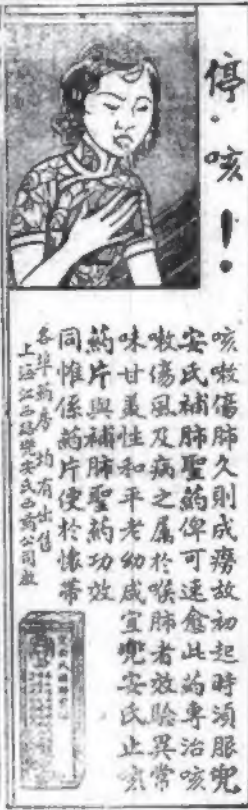 停·咳！
咳嗽傷肺久則成癆故初起時須服兜
安氏補肺聖藥俾可速愈此药專治咳
嗽傷風及病之屬於喉肺者效驗異常
味甘美性和平老幼咸宜兜安氏止咳
藥片與補肺聖藥功效
同惟係藥片便於懷帶
各埠藥房均有出售
上海江西路兜安氏西藥公司啟